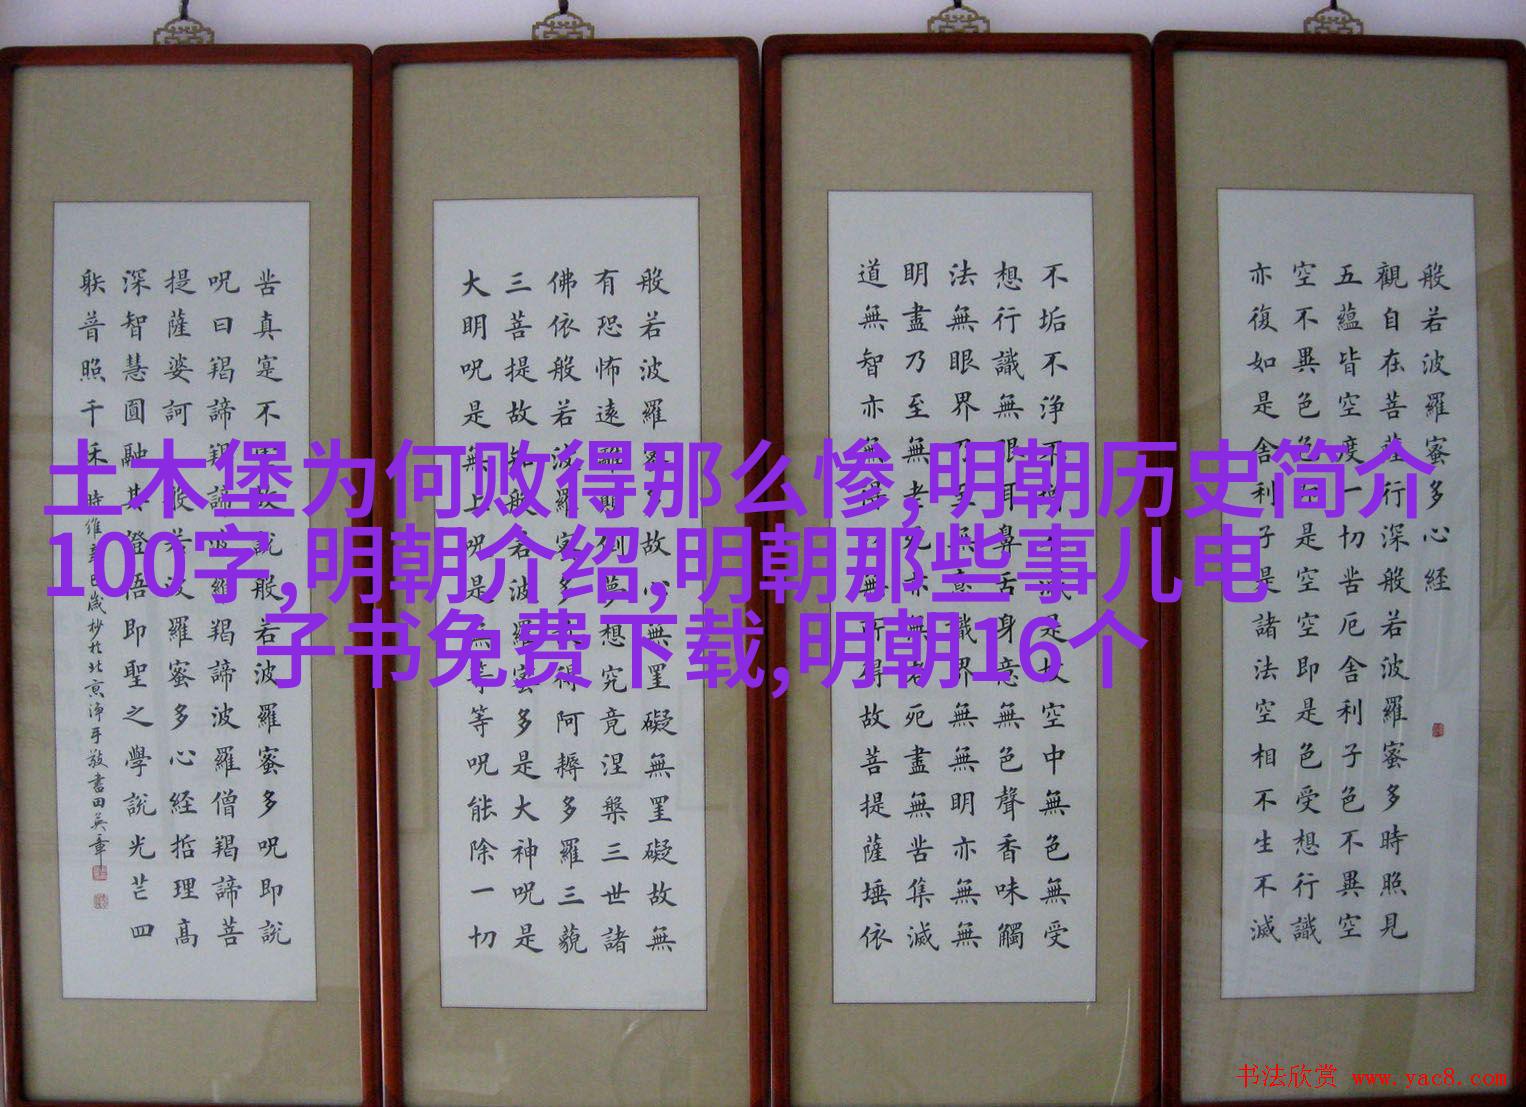 般若波羅蜜多心経
觀自在菩薩行深般若波羅蜜多時照見
五蘊皆空度一切苦厄舍利子色不異空
空不異色色是空空即是色受想行識
亦復如是舍利子是諸法空相不生不滅
不垢不浄不增不減是故空中無色無受
想行識無眼耳鼻舌身意無色聲香味觸
法無眼界乃至無意識界無無明亦無無
明盡乃至無老死亦無老死盡無苦集滅
道無智亦無得無所得故菩提薩埵依
般若波羅蜜多故心無罣礙無罣礙故無
有恐怖遠離顛倒夢想究竟涅槃三世諸
佛依般若波羅蜜多故得阿耨多羅三藐
三菩提故知般若波羅蜜多是大神呪是
大明呪是無上呪是無等等呪能除一切
苦真寔不故説般若波羅蜜多呪即説
呪曰羯諦羯諦波羅羯諦波羅僧羯諦菩
提薩婆訶般若波羅蜜多心経哲理高
深智慧圓融其證悟即聖之學説光芒四
躲普照千秋時維辛巳歲杪於北京敬書田英章
土木堡为何败得那么惨,明朝历史简介
100字,明朝介绍,明朝那些事儿电
子书免费下载,明朝16个
书法欣赏 www.yac8.com